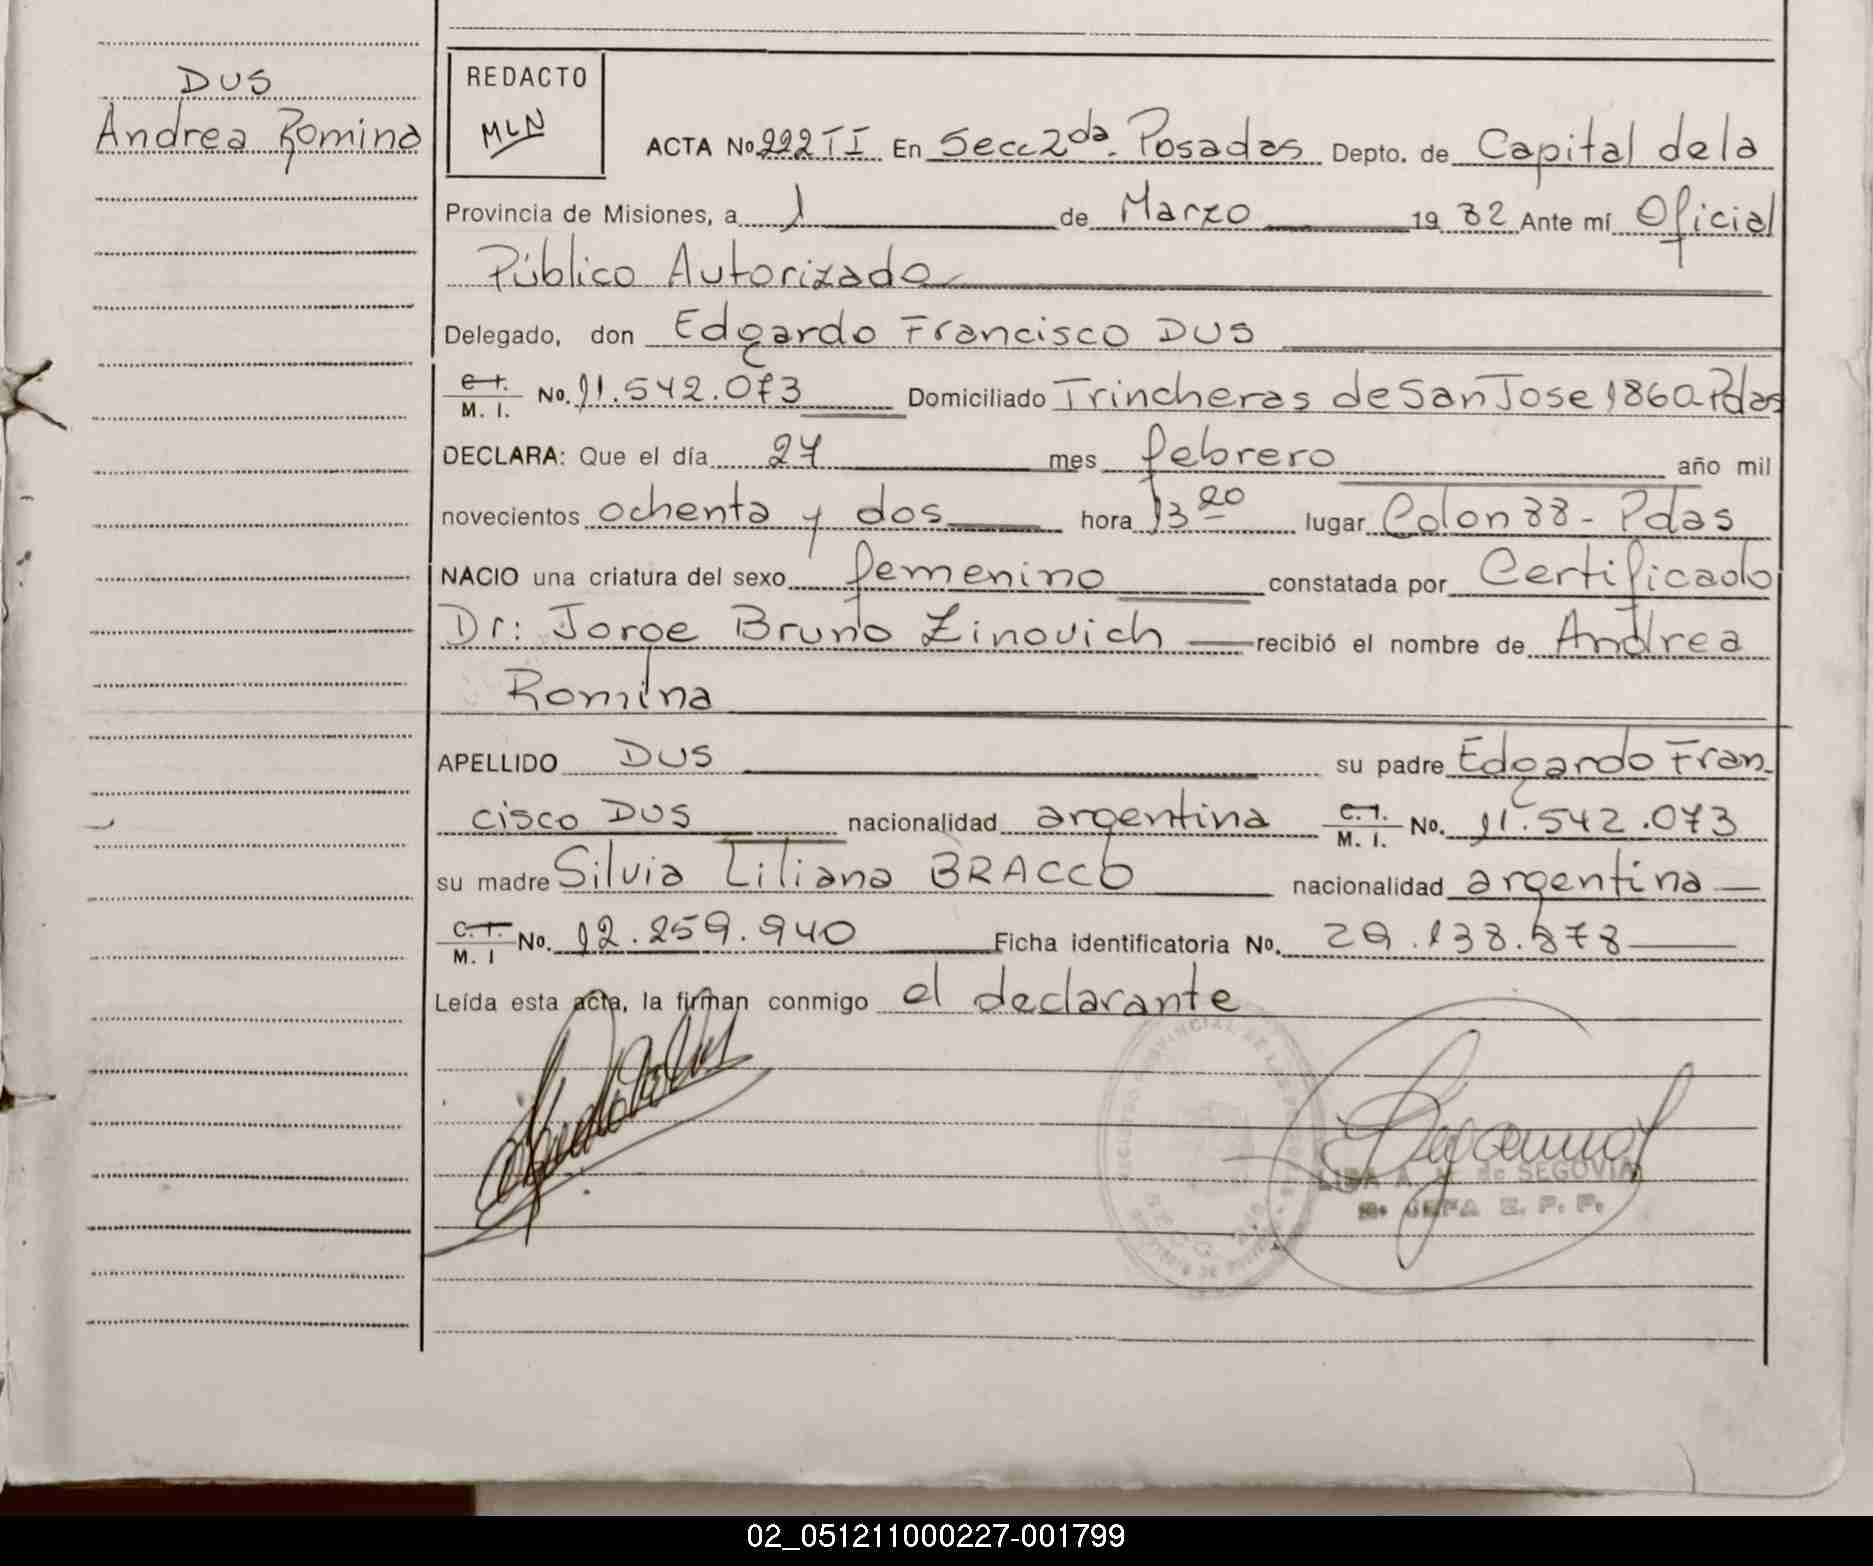 DUS
Andrea Romina
REDACTO
MLN
ACTA No 222 TI En Secc 2da. Posadas Depto. de Capital de la
Provincia de Misiones, a 1 de Marzo 1982 Ante mí Oficial
Público Autorizado
Delegado, don Edgardo Francisco DUS
C.I. M. I. No. 11.542.073 Domiciliado Trincheras de San Jose 1860 Pdas
DECLARA: Que el día 27 mes febrero año mil
novecientos ochenta y dos hora 13 20 lugar Colon 88 - Pdas
NACIO una criatura del sexo femenino constatada por Certificado
Dr: Jorge Bruno Zinovich recibió el nombre de Andrea
Romina
APELLIDO DUS su padre Edgardo Fran
cisco DUS nacionalidad argentina C.I. M. I. No. 11.542.073
su madre Silvia Liliana BRACCO nacionalidad argentina
C.I. M. I No. 12.259.940 Ficha identificatoria No. 29.138.878
Leída esta acta, la firman conmigo el declarante
de SEGOVIA
02_051211000227-001799